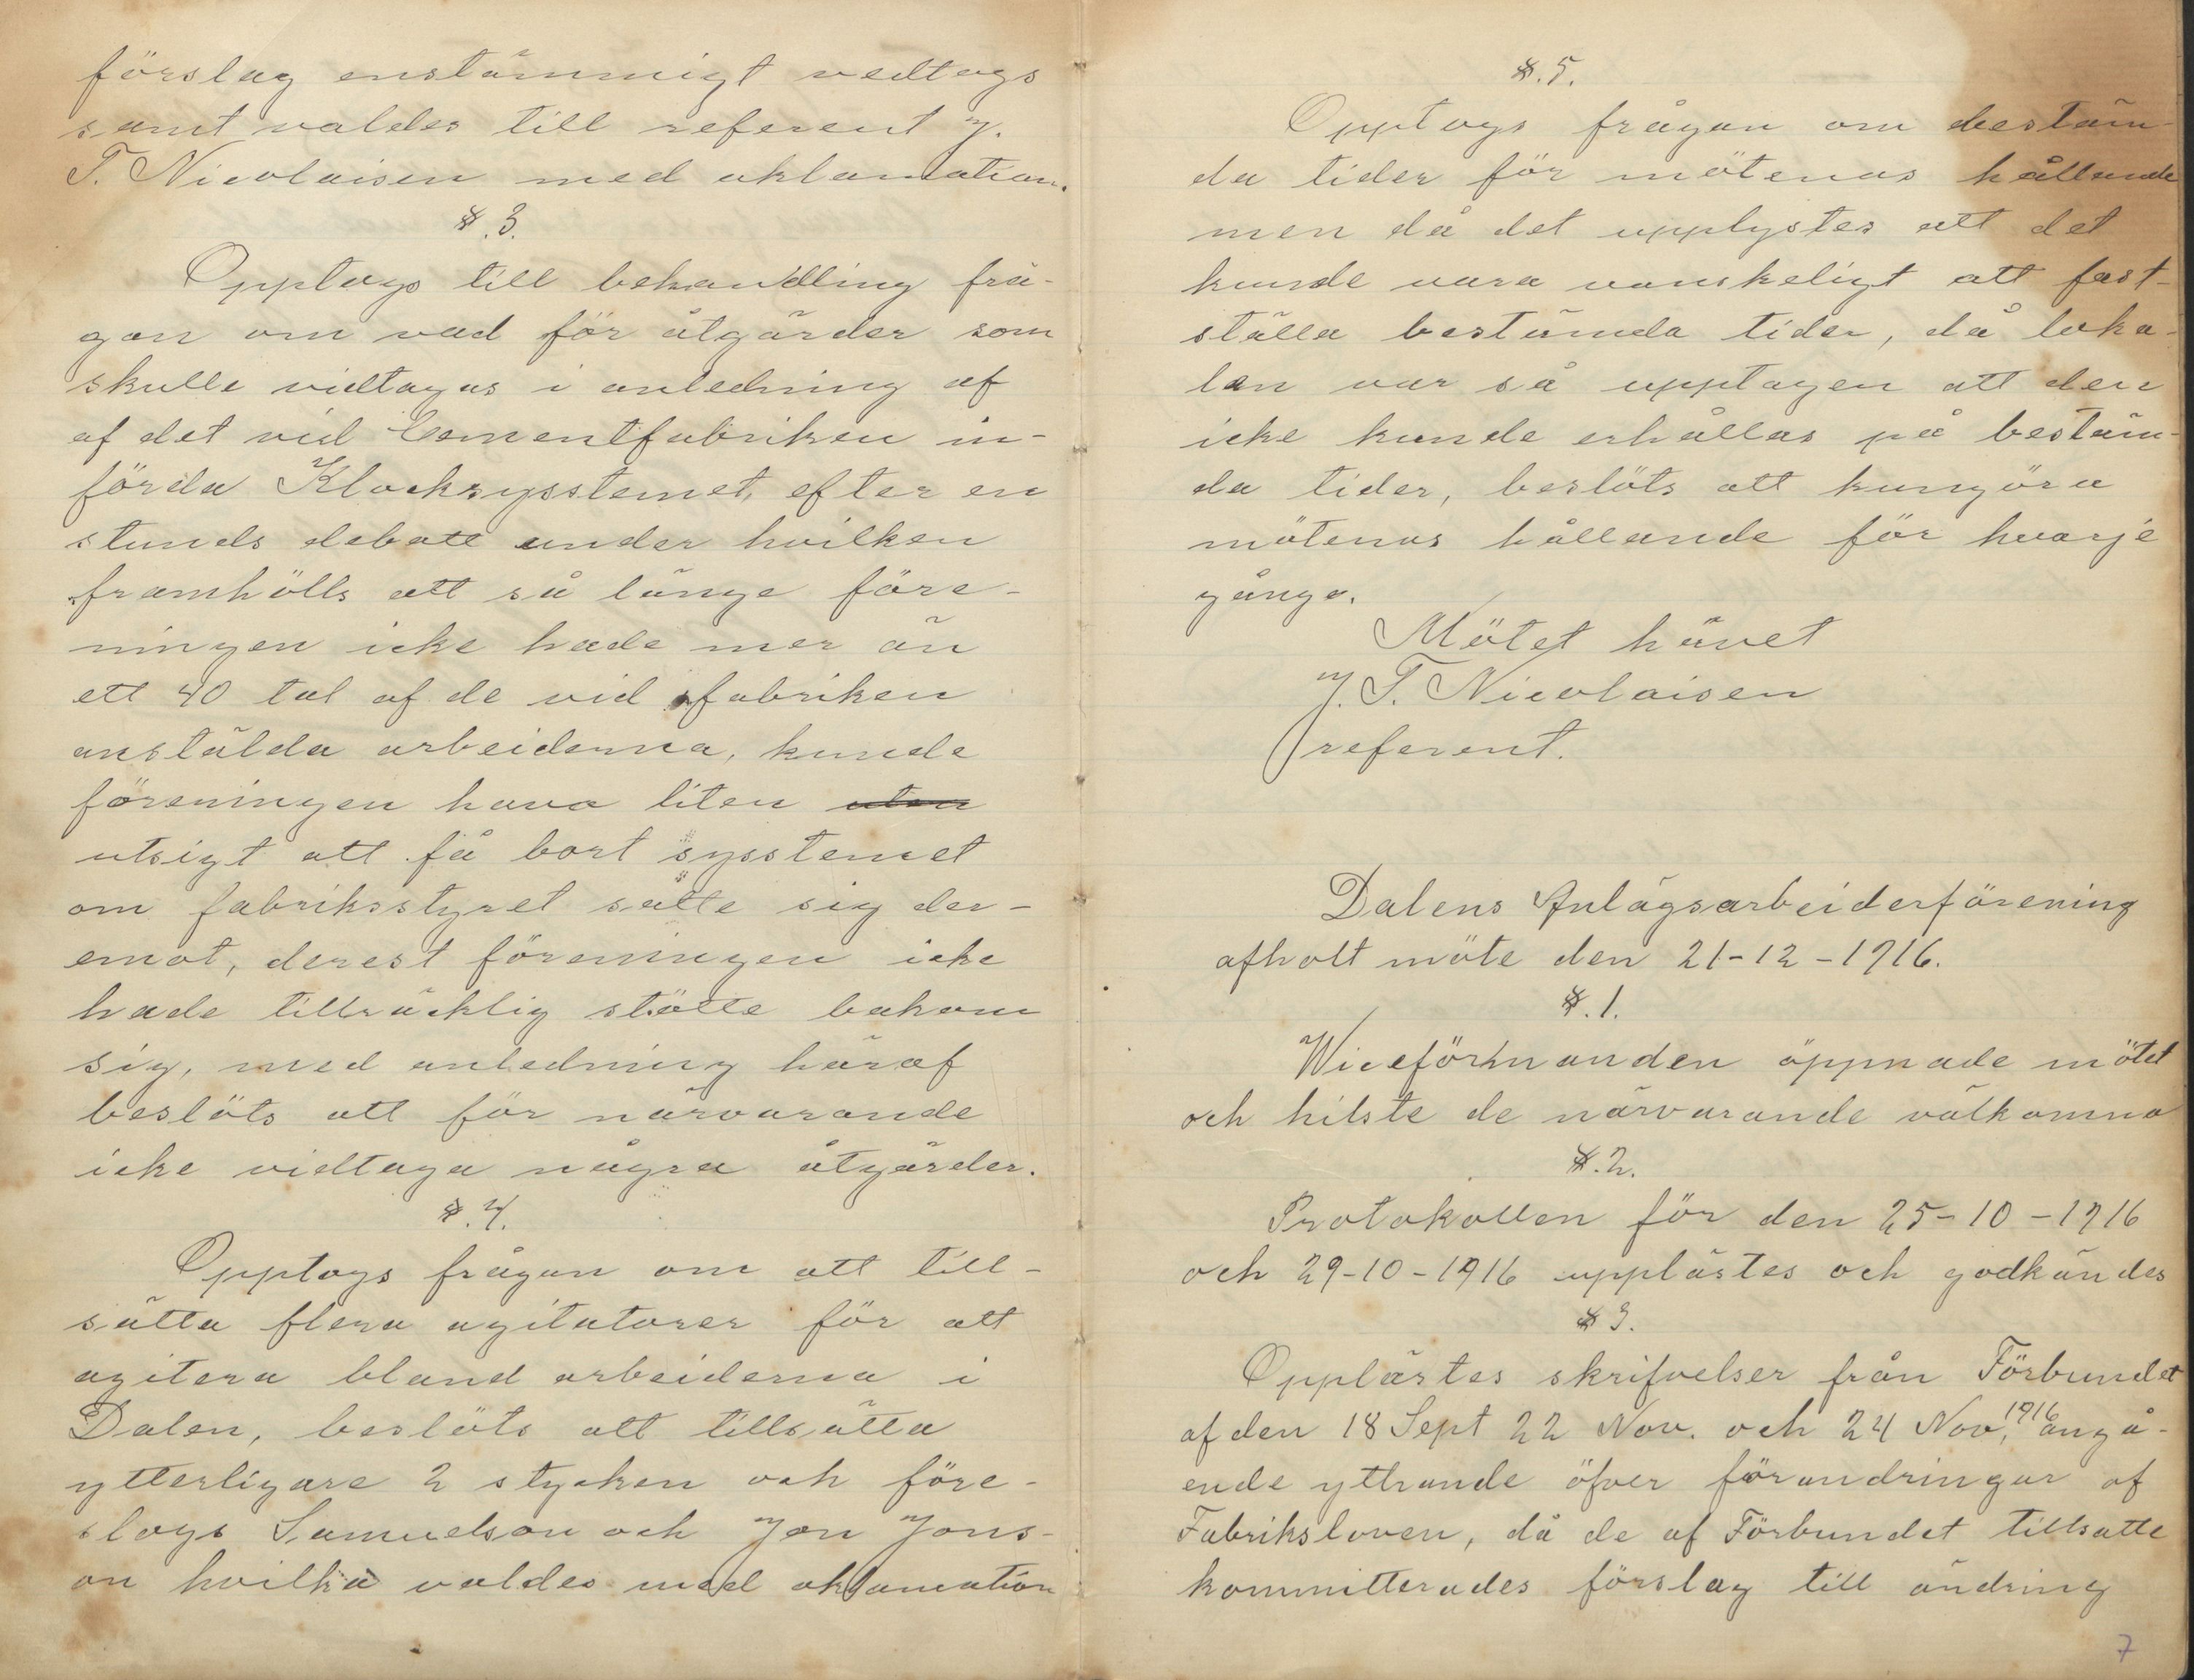 förslag enstämmigt vedtogs
samt valdes till referent J.
T. Nicolaisen med aklamation.
§.3.
Opptogs till behandling frå-
gan om vad för åtgärder som
skulle vidtagas i anledning af
af det vid Cementfabriken in-
förda Klocksysstemet, efter en
stunds debatt under hvilken
framhölls att så länge före-
ningen icke hade mer än
ett 40 tal af de vid fabriken
anstälda arbeiderna, kunde
föreningen hava liten uten
utsigt att få bort sysstemet
om fabriksstyret satte sig der-
emot, derest föreningen icke
hade tillräcklig stötte bakom
sig, med anledning häraf
beslöts att för närvarande
icke vidtaga några åtgärder.
§.4.
Opptogs frågan om att till-
sätta flera agitatorer för att
agitera bland arbeiderna i
Dalen, beslöts att tillsätta
ytterligare 2 stycken och före-
slogs Samuelson och Jon Jons-
on hvilka valdes med aklamation
§.5.
Opptogs frågan om bestäm-
da tider för mötenas hållande
men då det upplystes att det
kunde vara vanskeligt att fast-
ställa bestämda tider, då loka-
len var så upptagen att den
icke kunde erhållas på bestäm-
da tider, beslöts att kungöra
mötenas hållande för hvarje
gånge.
Mötet hävet
J. T. Nicolaisen
referent.
Dalens Anlägsarbeiderförening
afholt möte den 21-12-1916.
§.1.
Wiceförmanden öppnade mötet
och hilste de närvarande välkomna
§.2.
Protokollen för den 25-10-1916
och 29-10-1916 upplästes och godkändes
§ 3.
Opplästes skrifvelser från Förbundet
af den 18 Sept 22 Nov. och 24 Nov, 1916 angå-
ende yttrande öfver förandringar af
Fabriksloven, då de af Förbundet tillsatte
kommitterades förslag till ändring
7